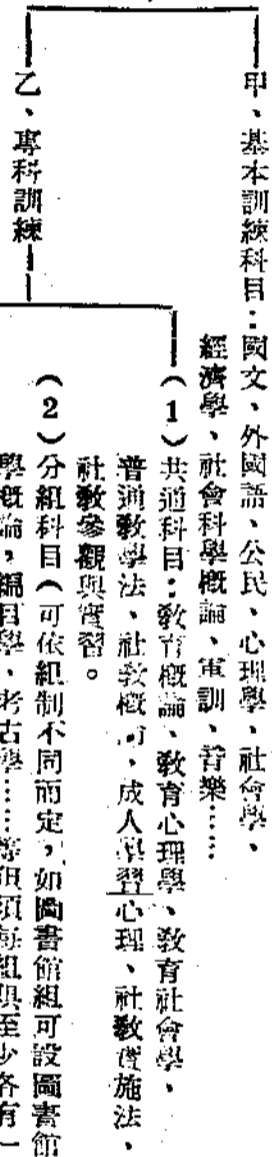 甲、基本訓練科目：國文、外國語、公民、心理學、社會學、
經濟學、社會科學概論、軍訓、音樂……
乙、專科訓練
（1）共通科目：教育概論、教育心理學、教育社會學、
普通教學法、社教概論、成人學習心理、社教實施法、
社教參觀與實習。
（2）分組科目（可依組制不同而定，如圖書館組可設圖書館
學概論，編目學，考古學……等但須每組與至少各有一